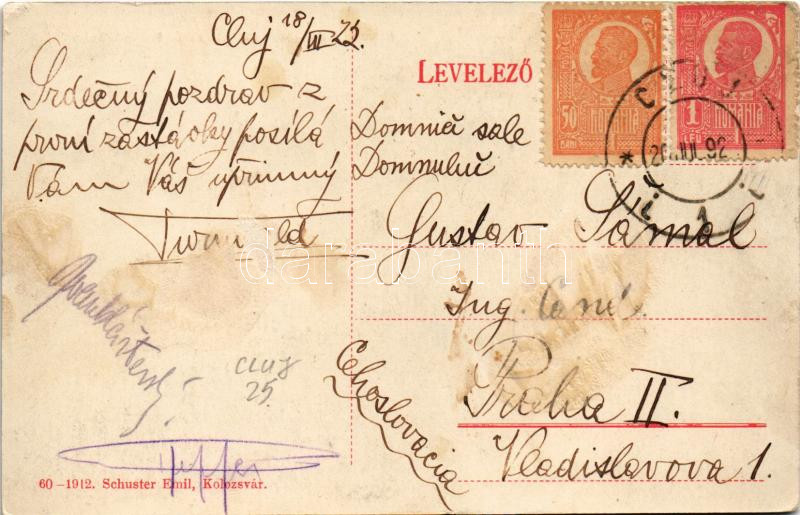 Cluj 18/VII 23.
Srdečný pozdrav z
první zastávky posílá
Vám Váš upřímný
LEVELEZŐ
50 BANI ROMANIA
1 LEU ROMANIA
CLUJ
20 JUL 92
1
Domniei sale
Domnului
Gustav Šámal
Ing.
Praha II.
Vladislavova 1.
Cehoslovacia
CLUJ
25
darabanth
60-1912. Schuster Emil, Kolozsvár.